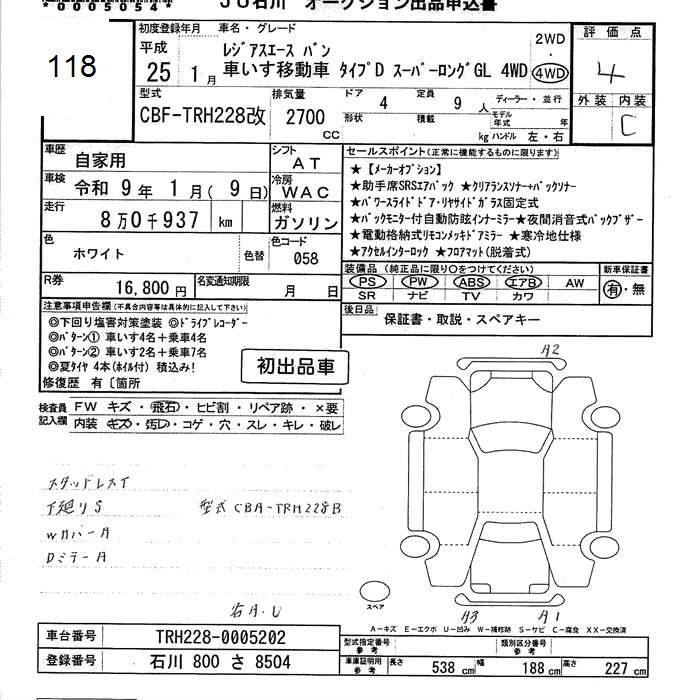 *0005054*
JU石川 オークション出品申込書
118
初度登録年月 車名・グレード
平成 25 1月
レジアスエース バン
車いす移動車 タイプD スーパーロングGL 4WD
2WD ・ 4WD
評価点
4
外装 内装
C
型式 CBF-TRH228改
排気量 2700 CC
ドア 4 定員 9 人 ディーラー・並行
形状 積載 kg モデル年式 年
ハンドル 左・右
車歴 自家用
シフト AT
車検 令和 9年 1月 ( 9日)
冷房 WAC
走行 8万0千937 km
燃料 ガソリン
色 ホワイト 色替
色コード 058
R券 16,800円
名変通知期限 月 日
セールスポイント(正常に機能するものに限ります)
★【メーカーオプション】
★助手席SRSエアバック ★クリアランスソナー+バックソナー
★パワースライドドア・リヤサイドガラス固定式
★バックモニター付自動防眩インナーミラー★夜間消音式バックブザー
★電動格納式リモコンメッキドアミラー ★寒冷地仕様
★アクセルインターロック ★フロアマット(脱着式)
装備品 (純正品に限り〇をつけてください)
PS PW ABS エアB AW
SR ナビ TV カワ
新車保証書
有・無
後日品 保証書・取説・スペアキー
注意事項申告欄(不具合内容等は具体的に記入して下さい)
◎下回り塩害対策塗装 ◎ドライブレコーダー
◎パターン① 車いす4名+乗車4名
◎パターン② 車いす2名+乗車7名
◎夏タイヤ 4本(ホイル付) 積込み!
修復歴 有〔箇所
初出品車
検査員記入欄
FW キズ・飛石・ヒビ割・リペア跡・×要
内装 キズ・汚レ・コゲ・穴・スレ・キレ・破レ
スタッドレスT
下廻りS 型式 CBA-TRH228B
Wカバー A
Dミラー A
右A.U
A2
A3 A1
スペア
A-キズ E-エクボ U-凹み W-補修跡 S-サビ C-腐食 XX-交換済
車台番号 TRH228-0005202
登録番号 石川 800 さ 8504
型式指定番号 参考
類別区分番号 参考
車庫証明用 参考 長さ 538 cm 幅 188 cm 高さ 227 cm